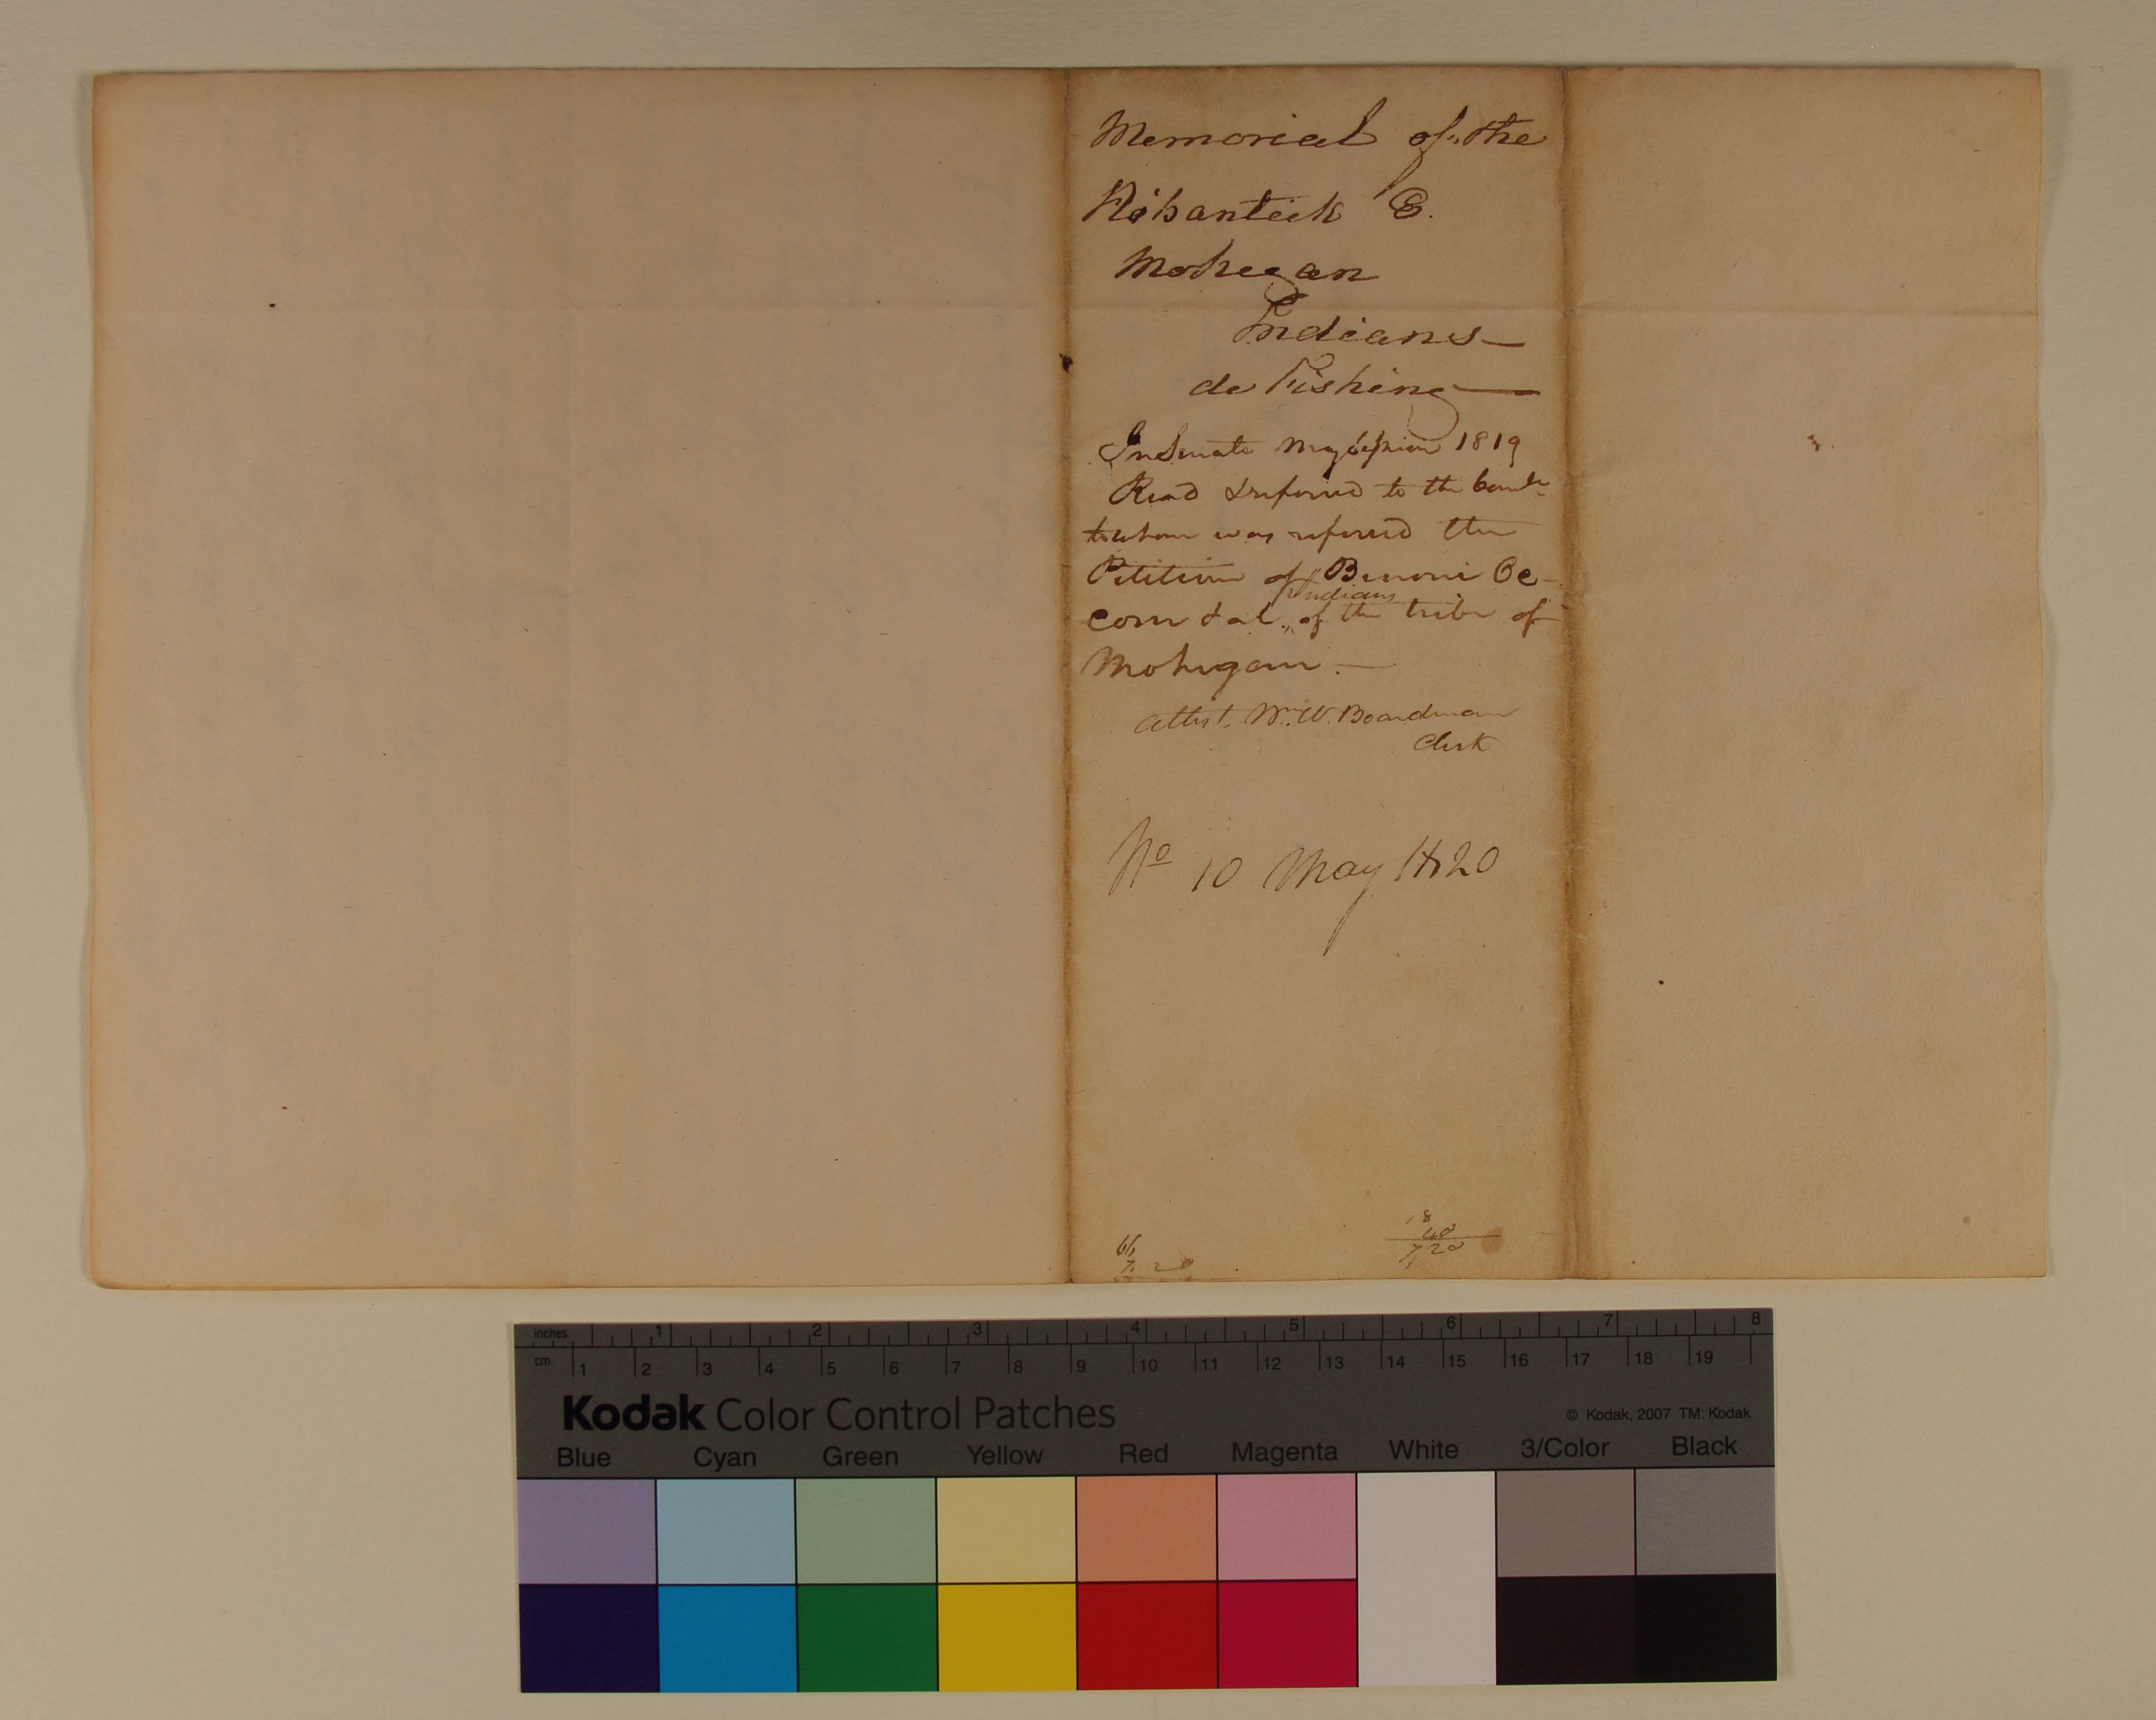 Memorial of the
Nihanteek &
Mohegan
Indians
de Fishing
In Senate May Session 1819
Read & referred to the Comtee
to whom was referred the
Petition of Benoni Oc-
Indians
com & al. „ of the tribe of
Mohegan. —
Attest, Wm. W. Boardman
Clerk
No 10 May 1820
18
40
7,20
66
7. 20
inches 1 2 3 4 5 6 7 8
cm 1 2 3 4 5 6 7 8 9 10 11 12 13 14 15 16 17 18 19
Kodak Color Control Patches
© Kodak, 2007 TM: Kodak
Blue Cyan Green Yellow Red Magenta White 3/Color Black